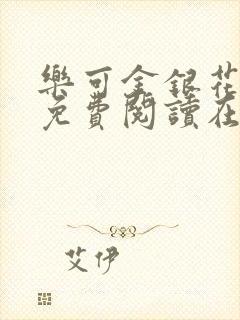 樂可金銀花
免費閱讀在
艾伊